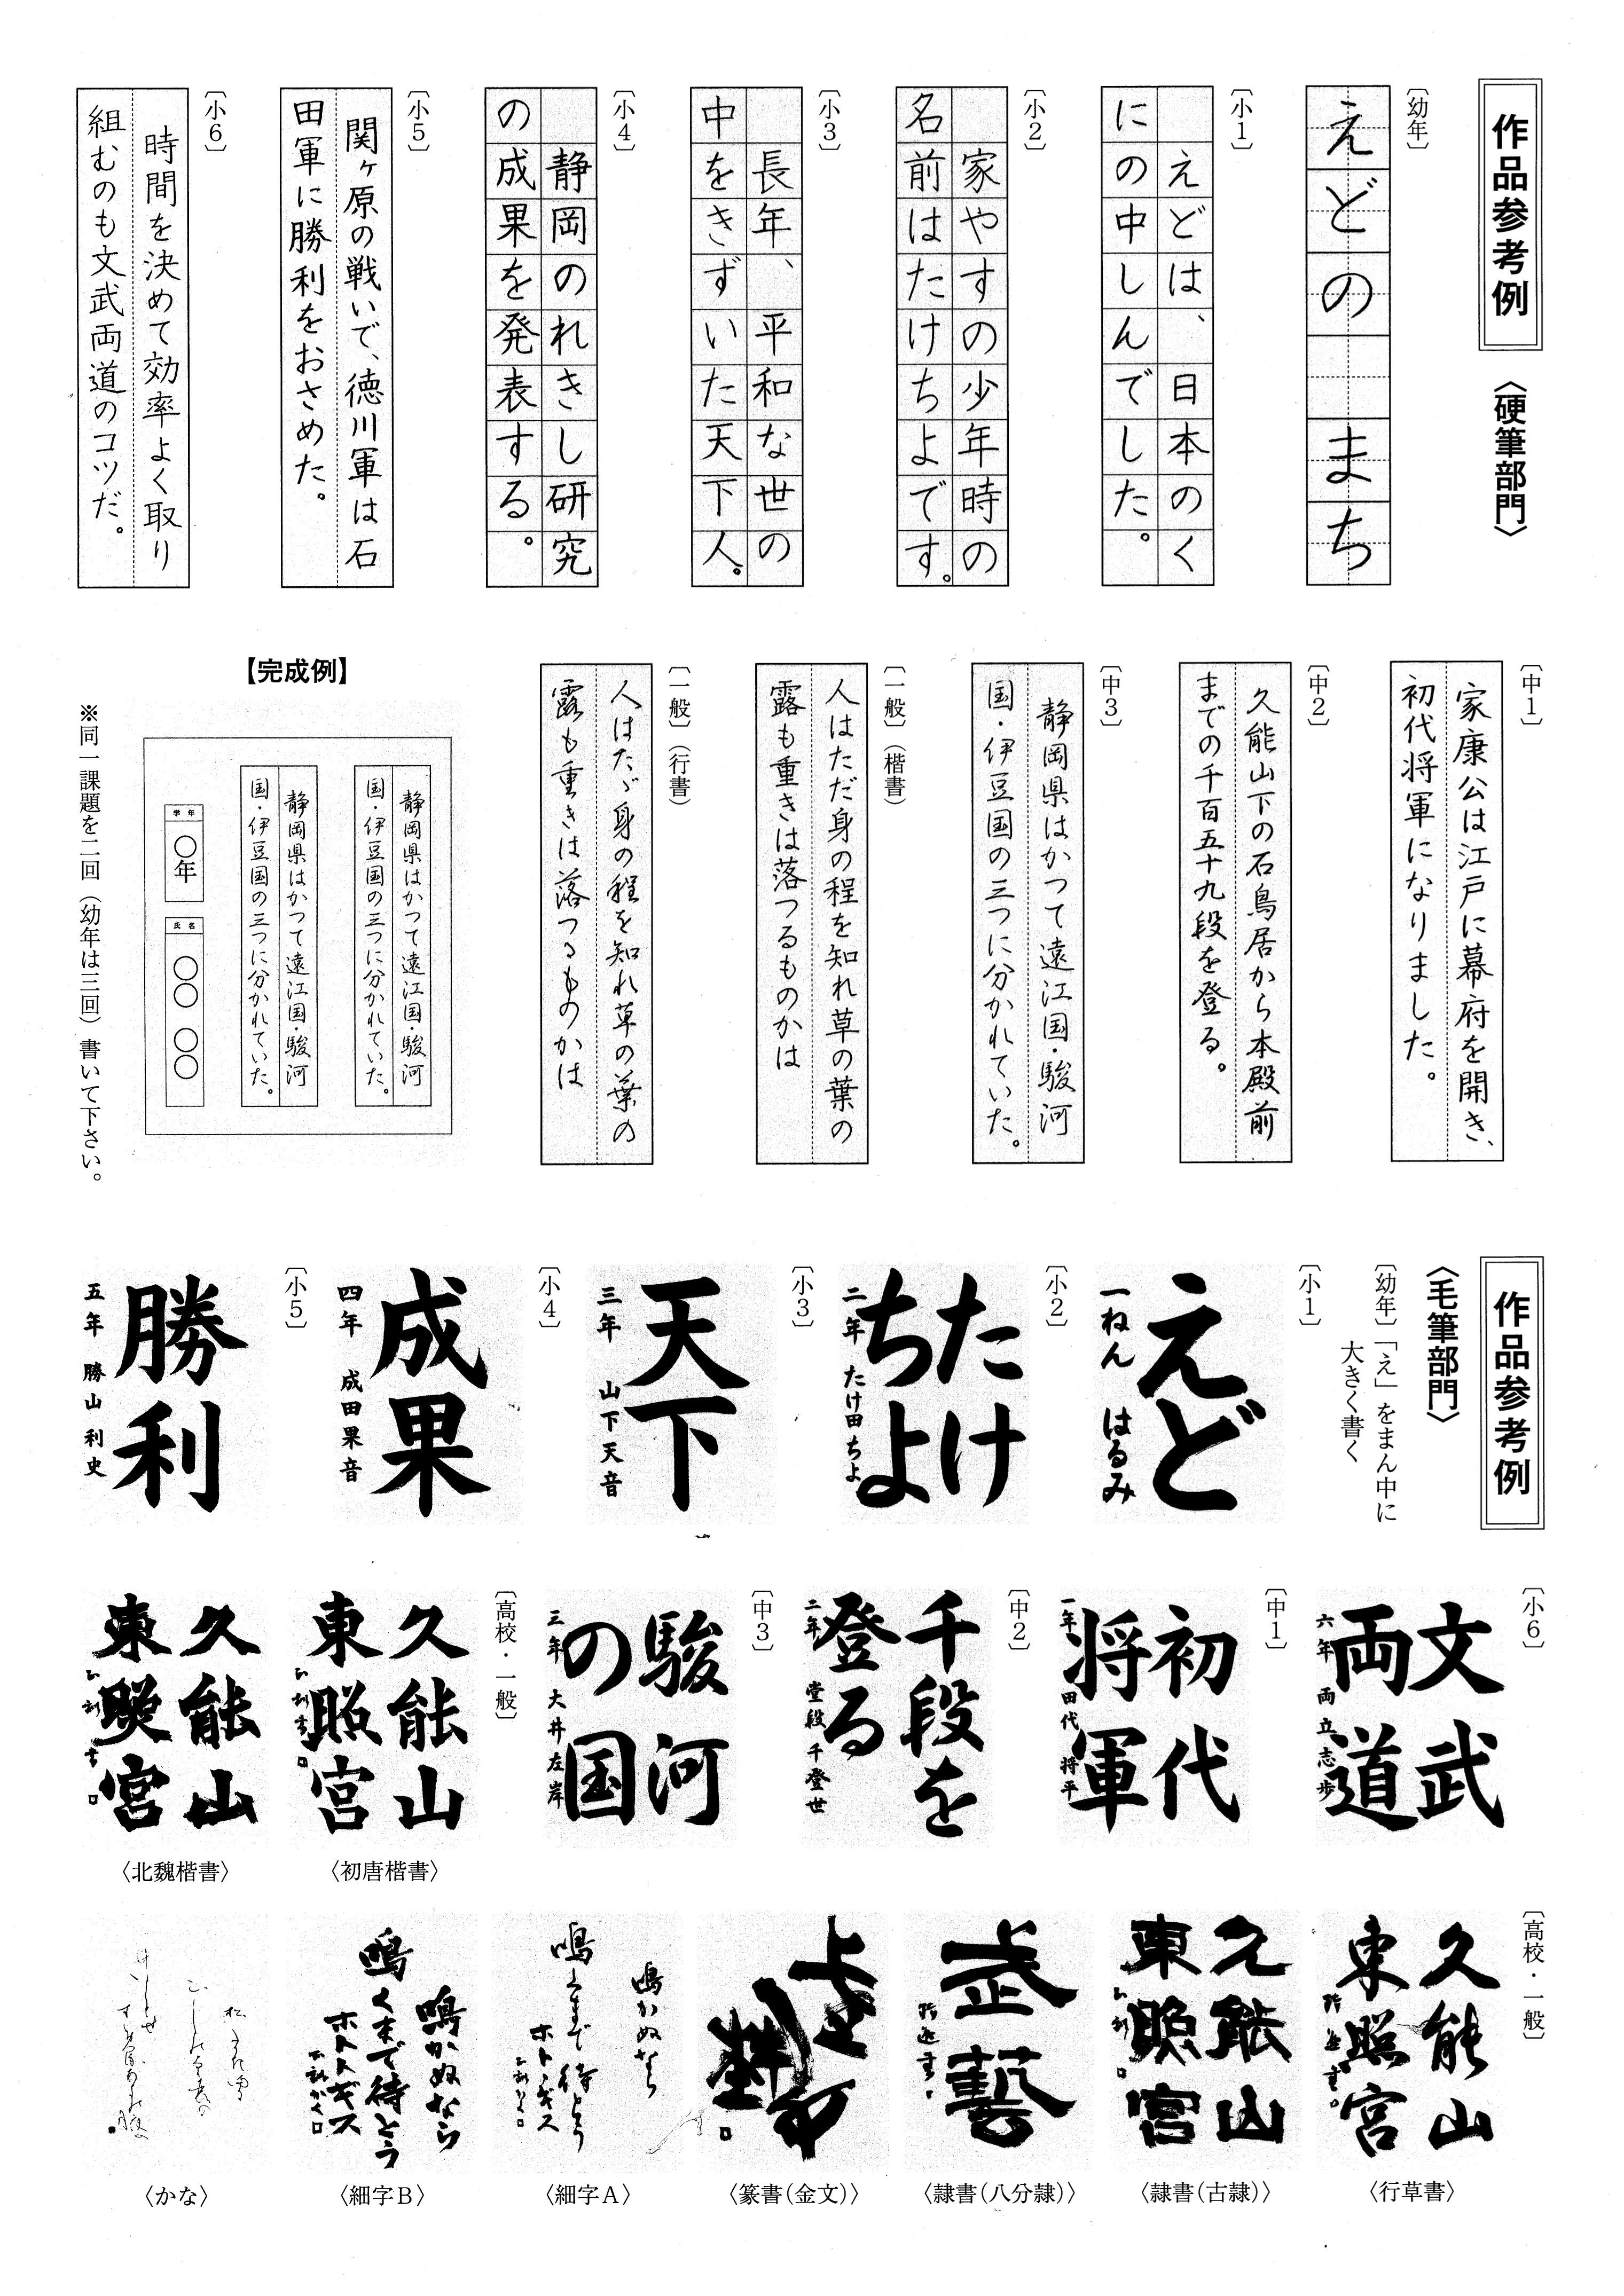 作品参考例
〈硬筆部門〉
〔幼年〕
えどの まち
〔小1〕
えどは、日本のく
にの中しんでした。
〔小2〕
家やすの少年時の
名前はたけちよです。
〔小3〕
長年、平和な世の
中をきずいた天下人。
〔小4〕
静岡のれきし研究
の成果を発表する。
〔小5〕
関ヶ原の戦いで、徳川軍は石
田軍に勝利をおさめた。
〔小6〕
時間を決めて効率よく取り
組むのも文武両道のコツだ。
〔中1〕
家康公は江戸に幕府を開き、
初代将軍になりました。
〔中2〕
久能山下の石鳥居から本殿前
までの千百五十九段を登る。
〔中3〕
静岡県はかつて遠江国・駿河
国・伊豆国の三つに分かれていた。
〔一般〕（楷書）
人はただ身の程を知れ草の葉の
露も重きは落つるものかは
〔一般〕（行書）
人はたゞ身の程を知れ草の葉の
露も重きは落つるものかは
【完成例】
静岡県はかつて遠江国・駿河
国・伊豆国の三つに分かれていた。
静岡県はかつて遠江国・駿河
国・伊豆国の三つに分かれていた。
学年
〇年
氏名
〇〇 〇〇
※同一課題を二回（幼年は三回）書いて下さい。
作品参考例
〈毛筆部門〉
〔幼年〕「え」をまん中に
大きく書く
〔小1〕
えど
一ねん はるみ
〔小2〕
たけ
ちよ
二年 たけ田ちよ
〔小3〕
天下
三年 山下天音
〔小4〕
成果
四年 成田果音
〔小5〕
勝利
五年 勝山利史
〔小6〕
文武
両道
六年 両立志歩
〔中1〕
初代
将軍
一年 田代将平
〔中2〕
千段を
登る
二年 堂段千登世
〔中3〕
駿河
の国
三年 大井左岸
〔高校・一般〕
久能山
東照宮
〈初唐楷書〉
久能山
東照宮
〈北魏楷書〉
〔高校・一般〕
久能山
東照宮
〈行草書〉
久能山
東照宮
〈隷書（古隷）〉
武藝
〈隷書（八分隷）〉
〈篆書（金文）〉
鳴かぬなら
鳴くまで待とう
ホトトギス
〈細字A〉
鳴かぬなら
鳴くまで待とう
ホトトギス
〈細字B〉
〈かな〉